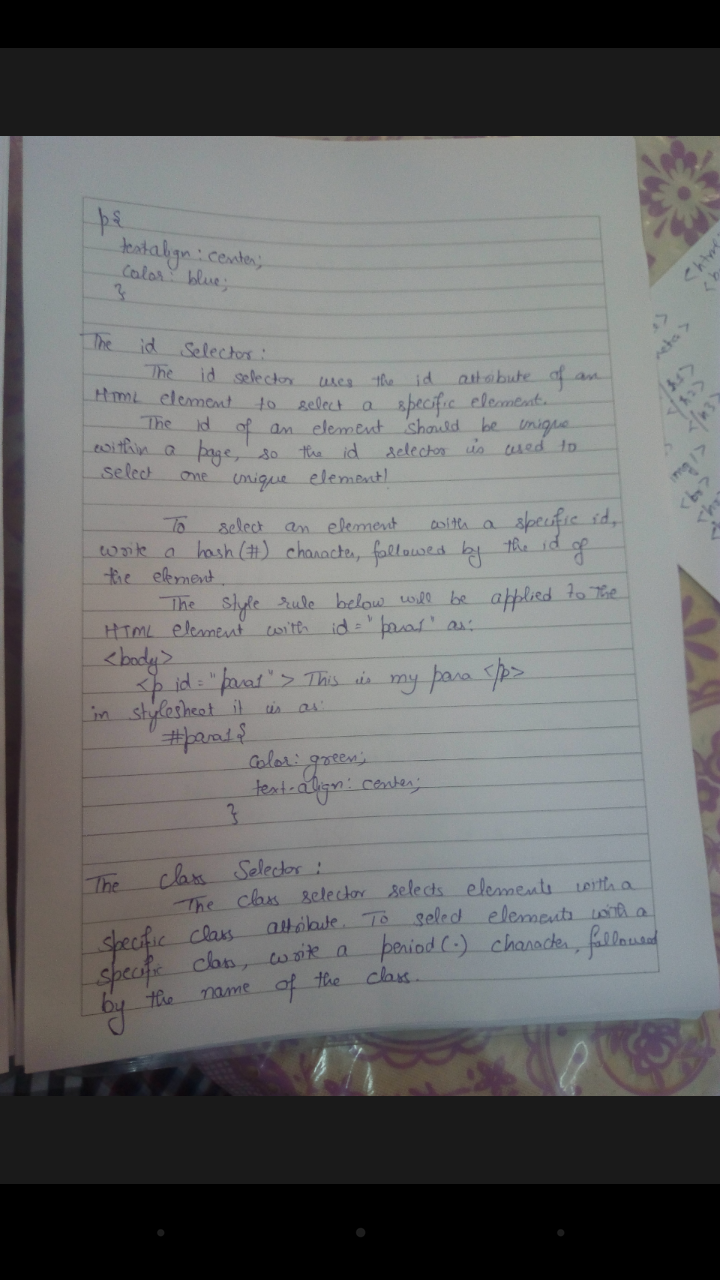 p{
textalign: center;
color: blue;
}
The id Selector:
The id selector uses the id attribute of an
HTML element to select a specific element.
The id of an element should be unique
within a page, so the id selector is used to
select one unique element!
To select an element with a specific id,
write a hash (#) character, followed by the id of
the element.
The style rule below will be applied to the
HTML element with id="para1" as:
<body>
<p id="para1"> This is my para </p>
in stylesheet it is as:
#para1{
color: green;
text-align: center;
}
The class Selector:
The class selector selects elements with a
specific class attribute. To select elements with a
specific class, write a period(.) character, followed
by the name of the class.
<html
<h
</h3>
img/>
<br>